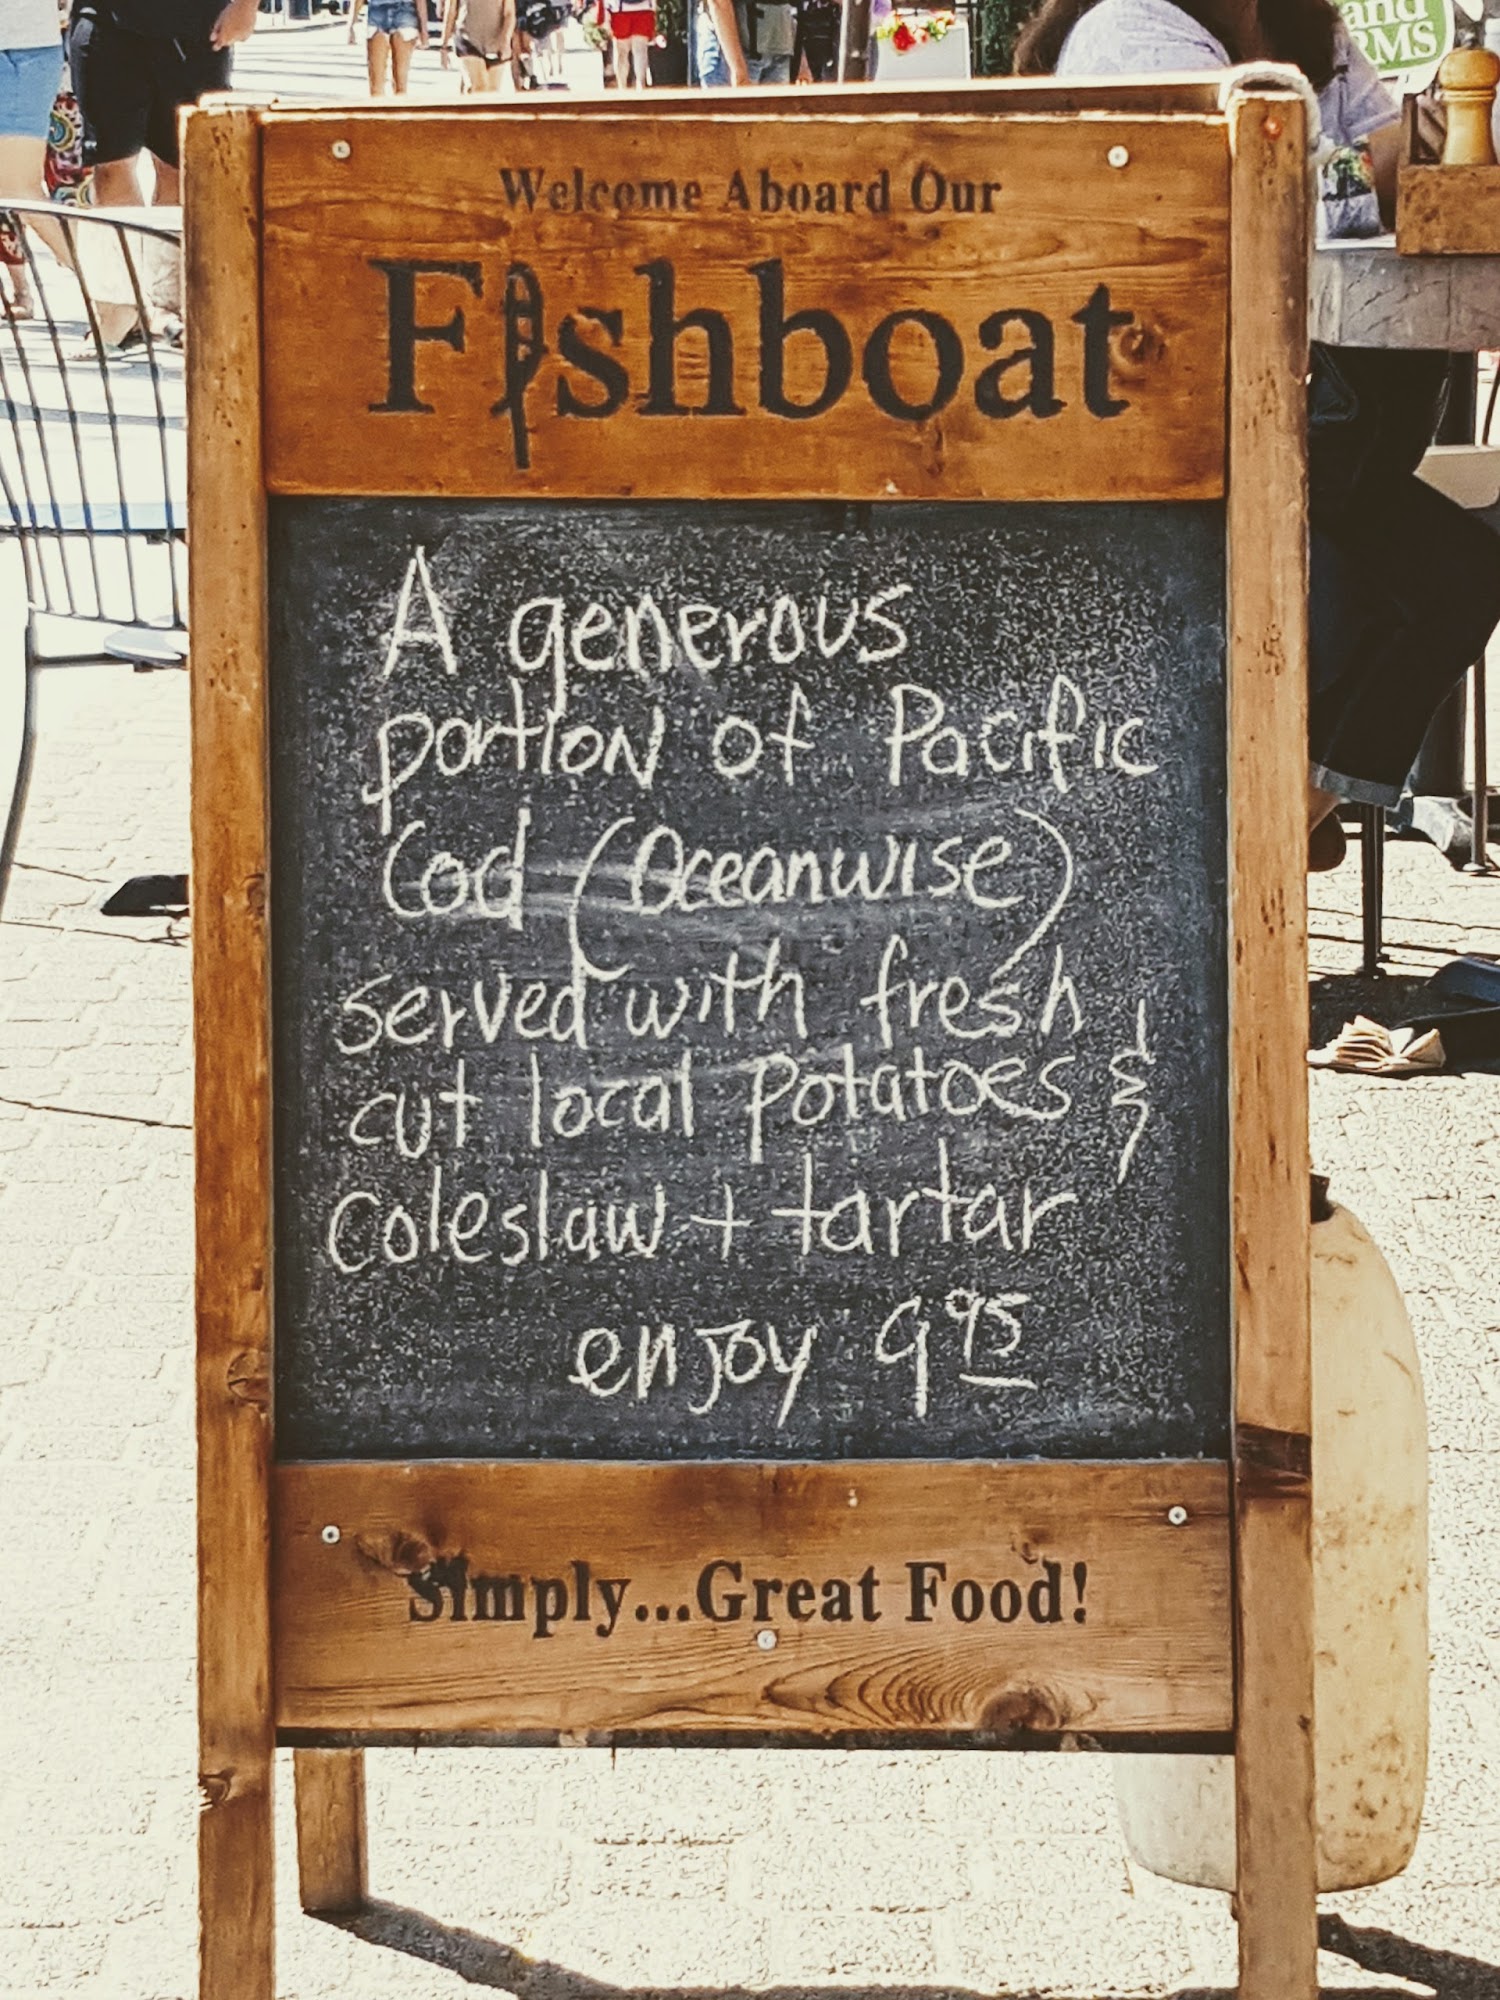 and
RMS
Welcome Aboard Our
Fishboat
A generous
portion of Pacific
Cod (Oceanwise)
served with fresh
cut local potatoes &
coleslaw + tartar
enjoy 9 95
Simply...Great Food!